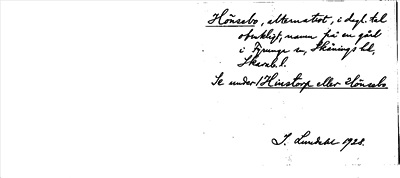 Hönsebo, alternativt, i dagl. tal
obrukligt, namn på en gård
i Fyrunga sn, Skånings hd,
Skarab. l.
Se under Hinstorp eller Hönsebo
J. Lundahl 1928.